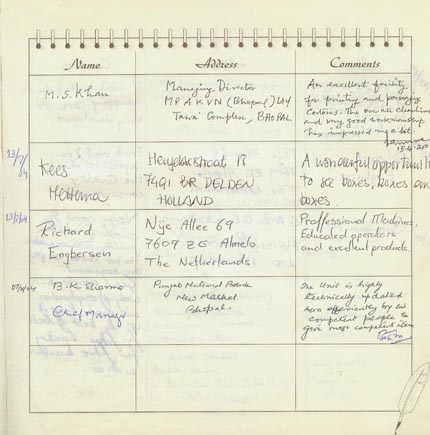 Name Address Comments
M.S. Khan
Managing Director
MPAKVN (Bhopal) Ltd
"Tawa" Complex, BHOPAL
An excellent facility
for printing and packaging
Cartons. The overall
and very good workmanship
has impressed me a lot.
13/7/04
Kees
Hettema
7491 BR DELDEN
HOLLAND
A wonderful
to see boxes, boxes
boxes.
13/7/04
Richard
Engbersen
Nije Allee 69
7609 ZG Almelo
The Netherlands
Proffessional Machines.
Educated operators
and excellent products.
B.K. Sharma
Chief Manager
Punjab National
New Market
Bhopal.
The Unit is highly
technically updated
run efficiently by
competent people to
give most competent